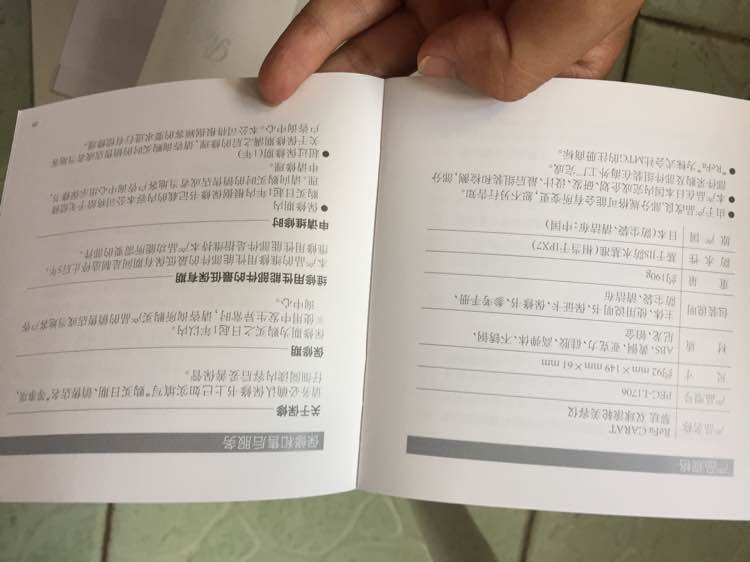 产品规格
产品名称 ReFa CARAT
黎珐 双球滚轮美容仪
产品型号 PEC-L1706
尺 寸 约92 mm × 149 mm × 61 mm
材 质 ABS、黄铜、亚克力、硅胶、高弹体、不锈钢、
尼龙、铂金
包装说明 主体、使用说明书、保证卡、保修书、参考手册、
防尘袋、清洁布
重 量 约190g
防 水 性 基于JIS防水基准(相当于IPX7)
原 产 国 日本(防尘袋、清洁布:中国)
● 由于产品改良,部分规格可能会有所变更,恕不另行告知。
● 本产品在日本国内完成企划、研发、设计、最后组装和检测,部分
部件采购及部件组装在海外工厂完成。
● "ReFa"为株式会社MTG的注册商标。
保修和售后服务
关于保修
请务必确认保修书上已如实填写"购买日期、销售店名"等事项,
仔细阅读内容后妥善保管。
保修期
保修期为购买之日起1年以内。
※使用中发生异常时,请咨询所购买产品的销售店或当地客户咨
询中心。
维修用性能部件的最低保有期
本产品的维修用性能部件的最低保有期间是制造终止后5年。
维修用性能部件是指维持本产品功能所需要的部件。
申请维修时
● 保修期内
购买日起1年内根据保修书记载的内容本公司将给予免费修
理。请向购买时的销售店或者当地客户咨询中心出示保修书,
申请修理。
● 超过保修期(1年)
关于保修期满之后的修理,请咨询购买时的销售店或者当地客
户咨询中心。本公司将根据顾客的要求进行有偿修理。